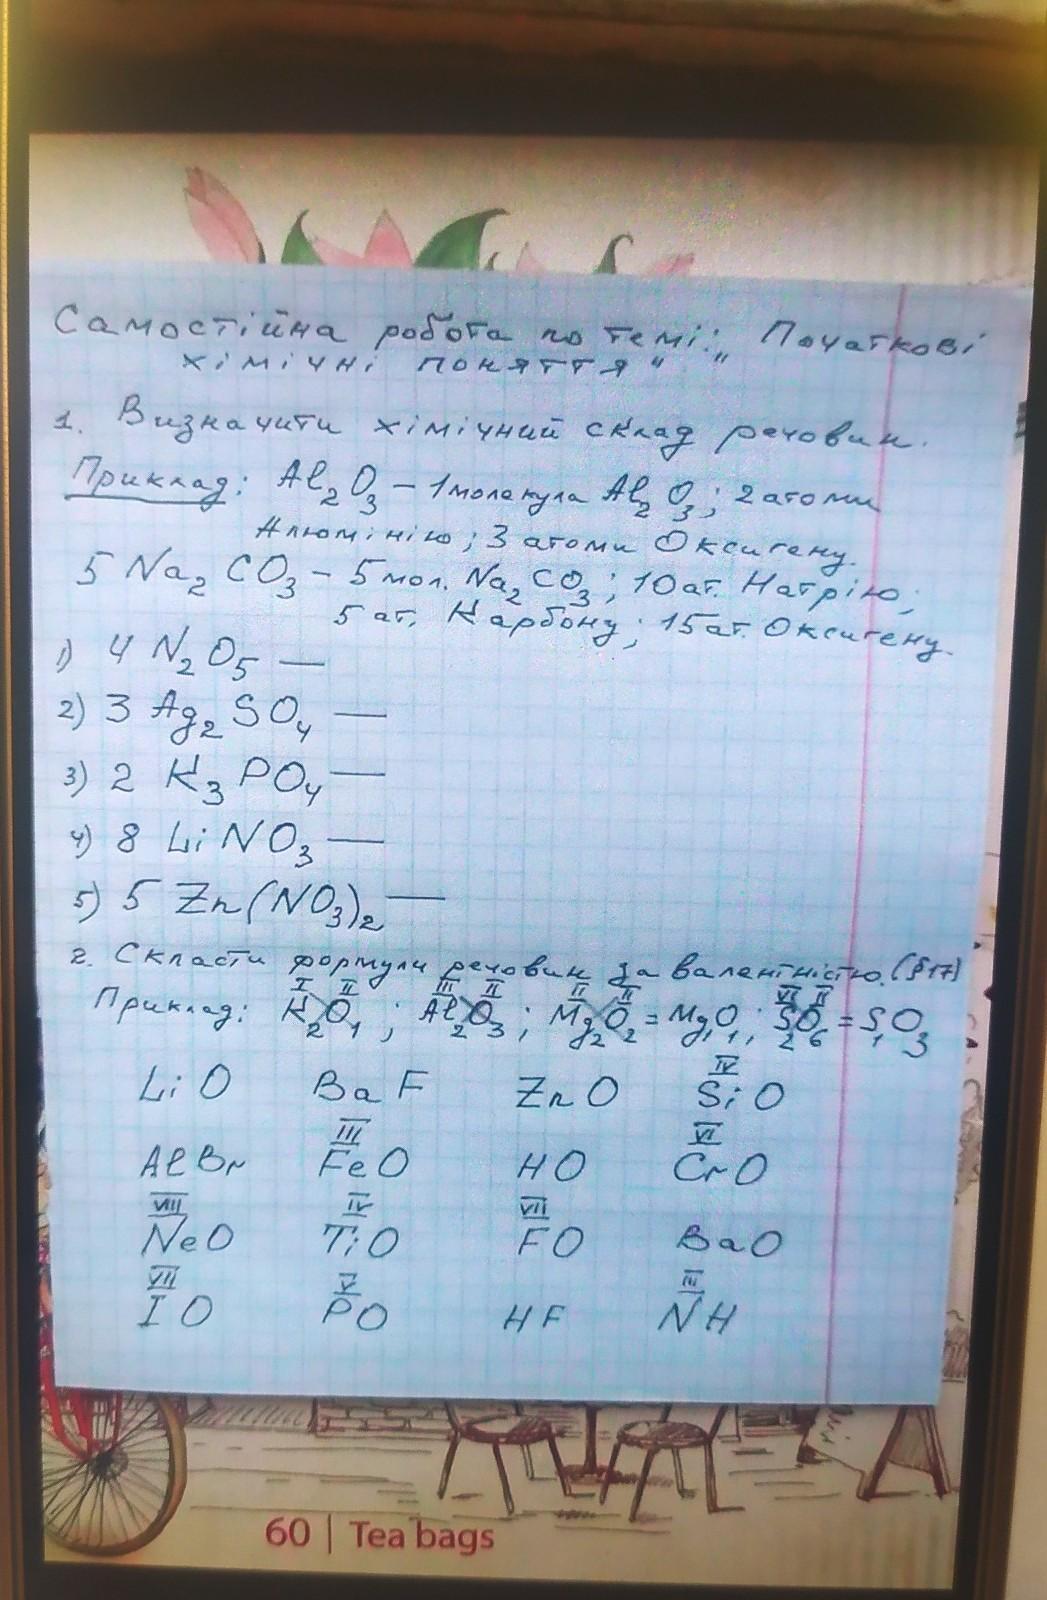 Самостійна робота по темі: „Початкові
хімічні поняття“
1. Визначити хімічний склад речовин.
Приклад: Al₂O₃ – 1 молекула Al₂O₃; 2 атоми
Алюмінію; 3 атоми Оксигену.
5 Na₂CO₃ – 5 мол. Na₂CO₃; 10 ат. Натрію;
5 ат. Карбону; 15 ат. Оксигену.
1) 4 N₂O₅ —
2) 3 Ag₂SO₄ —
3) 2 K₃PO₄ —
4) 8 LiNO₃ —
5) 5 Zn(NO₃)₂ —
2. Скласти формули речовин за валентністю. (§17)
I II III II II II VI II
Приклад: K₂O₁; Al₂O₃; Mg₂O₂ = Mg₁O₁; S₂O₆ = S₁O₃
IV
LiO BaF ZnO SiO
III VI
AlBr FeO HO CrO
VIII IV VII
NeO TiO FO BaO
VII V III
IO PO HF NH
60 | Tea bags